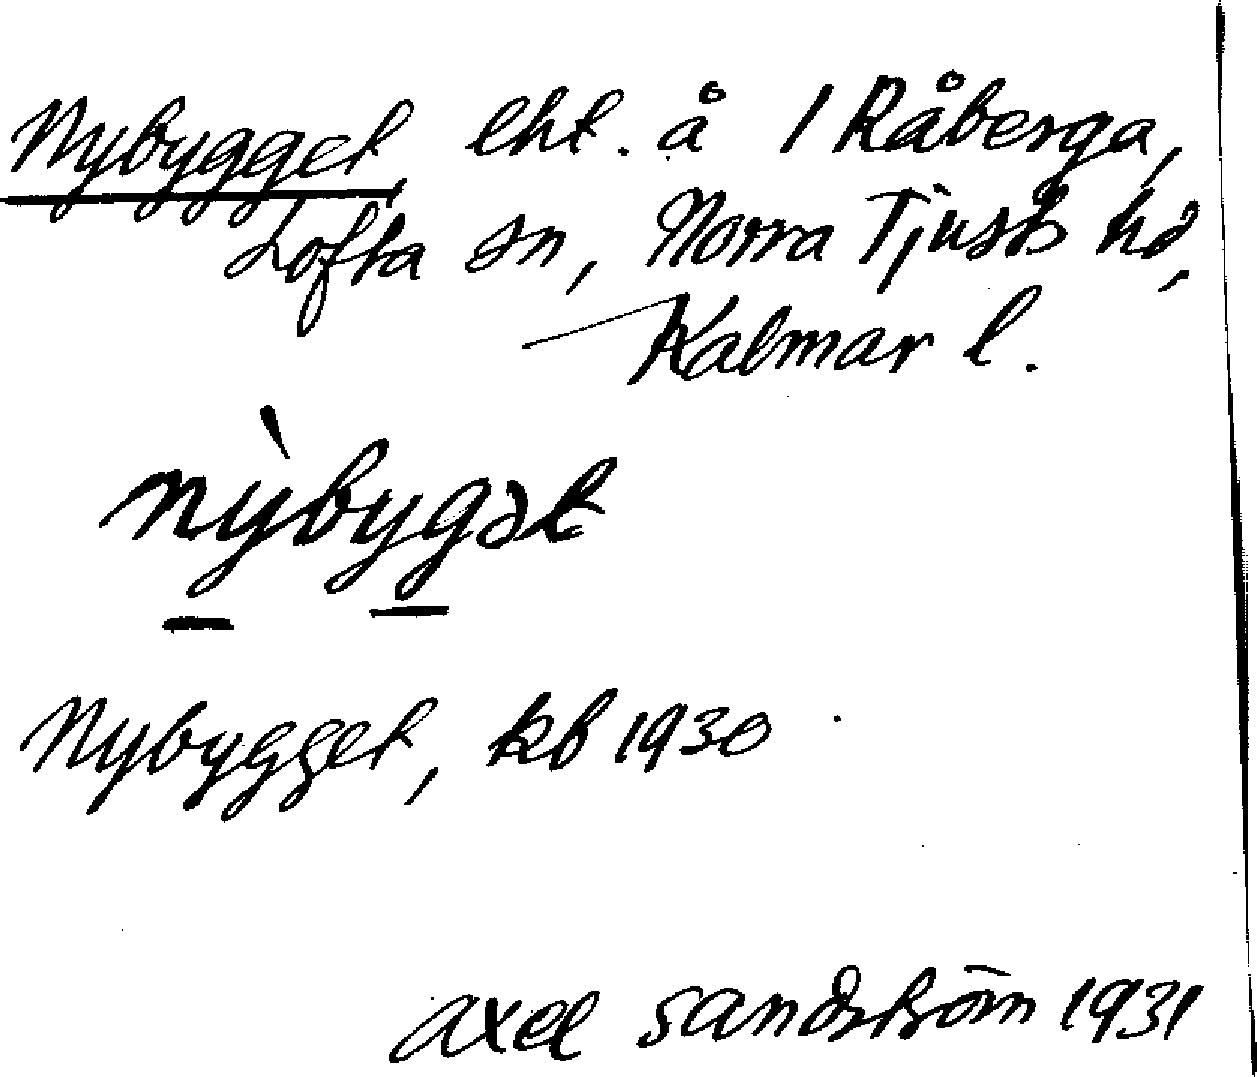 Nybygget, lht. å 1 Råberga,
Lofta sn, Norra Tjusts hd,
Kalmar l.
nỳbygət
Nybygget, kb 1930
Axel Sandström 1931